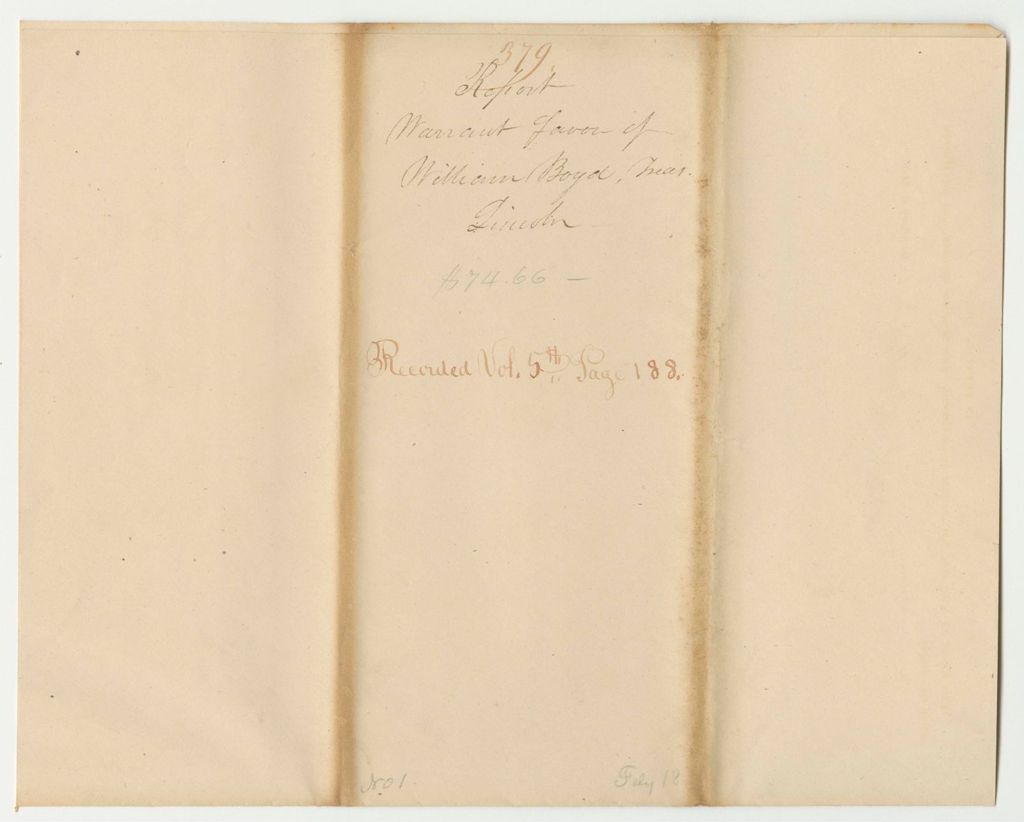 379.
Report
Warrant favor of
William Boyd, Treas.
Lincoln
$74.66 —
Recorded Vol. 5th. Page 188.
No 1.
Feby 18